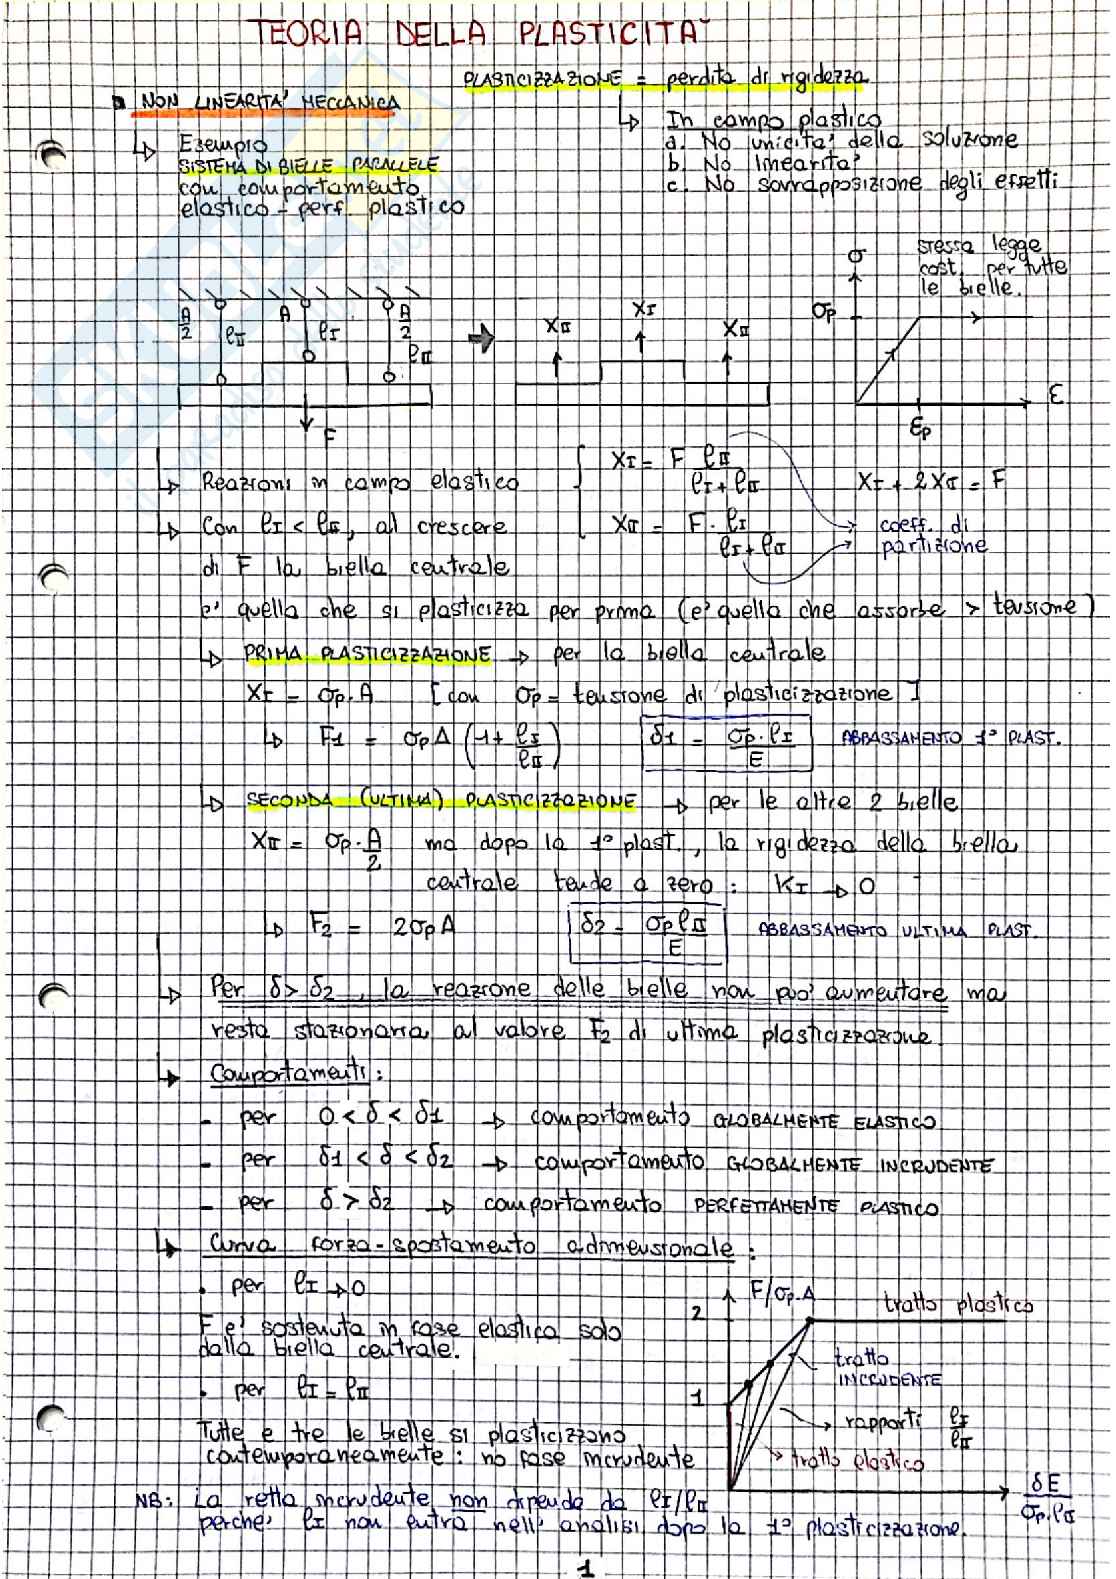 TEORIA DELLA PLASTICITA'
PLASTICIZZAZIONE = perdita di rigidezza
NON LINEARITA' MECCANICA
↳ In campo plastico
a. No unicita' della soluzione
b. No linearita'
c. No sovrapposizione degli effetti
↳ Esempio
SISTEMA DI BIELLE PARALLELE
con comportamento
elastico - perf. plastico
stessa legge
cost. per tutte
le bielle.
σ
σp
ε
εp
A/2 ℓII A ℓI A/2 ℓII
F
XII XI XII
↳ Reazioni in campo elastico
XI = F ℓII/(ℓI+ℓII)
XII = F·ℓI/(ℓI+ℓII)
XI + 2XII = F
coeff. di
partizione
↳ Con ℓI < ℓII, al crescere
di F la biella centrale
e' quella che si plasticizza per prima (e' quella che assorbe > tensione)
↳ PRIMA PLASTICIZZAZIONE → per la biella centrale
XI = σp·A [con σp = tensione di plasticizzazione]
↳ F1 = σpA (1+ℓI/ℓII) δ1 = σp·ℓI/E ABBASSAMENTO 1° PLAST.
↳ SECONDA (ULTIMA) PLASTICIZZAZIONE → per le altre 2 bielle
XII = σp·A/2 ma dopo la 1° plast., la rigidezza della biella
centrale tende a zero: KI → 0
↳ F2 = 2σpA δ2 = σpℓII/E ABBASSAMENTO ULTIMA PLAST.
↳ Per δ > δ2, la reazione delle bielle non puo' aumentare ma
resta stazionaria al valore F2 di ultima plasticizzazione.
↳ Comportamenti:
- per 0 < δ < δ1 → comportamento GLOBALMENTE ELASTICO
- per δ1 < δ < δ2 → comportamento GLOBALMENTE INCRUDENTE
- per δ > δ2 → comportamento PERFETTAMENTE PLASTICO
↳ Curva forza-spostamento adimensionale:
• per ℓI → 0
F e' sostenuta in fase elastica solo
dalla biella centrale.
• per ℓI = ℓII
Tutte e tre le bielle si plasticizzano
contemporaneamente: no fase incrudente
F/σp.A
2
1
tratto plastico
tratto
INCRUDENTE
rapporti ℓI/ℓII
tratto elastico
δE/σp.ℓII
NB: La retta incrudente non dipende da ℓI/ℓII
perche' ℓI non entra nell'analisi dopo la 1° plasticizzazione.
1